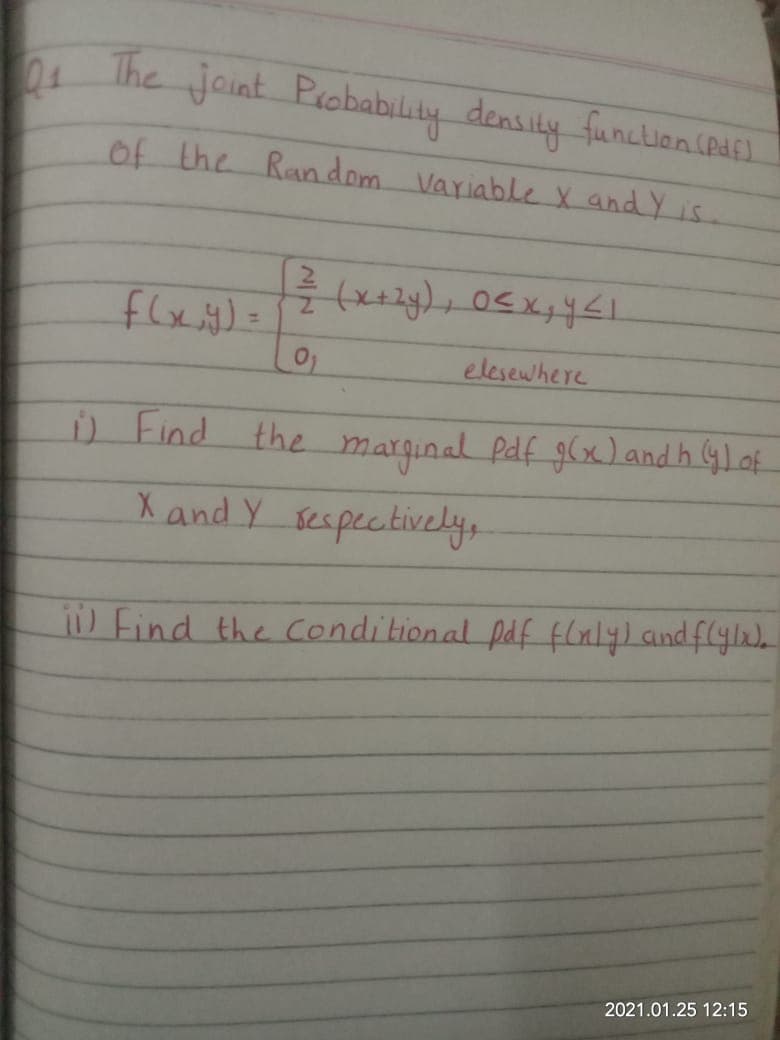 Q1 The joint Probability density function (pdf)
of the Random variable X and Y is.
f(x,y) = { 2/2 (x+2y), 0≤x,y≤1
0, elesewhere
i) Find the marginal pdf g(x) and h(y) of
X and Y respectively,
ii) Find the conditional pdf f(x|y) and f(y|x).
2021.01.25 12:15